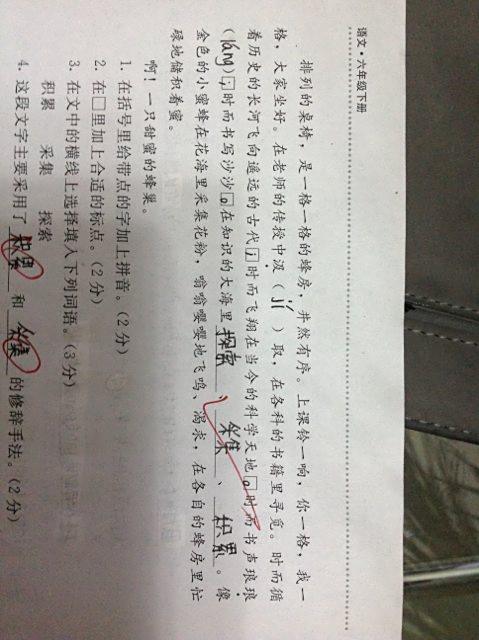 语文·六年级下册
排列的桌椅，是一格一格的蜂房，井然有序。上课铃一响，你一格，我一
格，大家坐好。在老师的传授中汲（jí）取，在各科的书籍里寻觅。时而循
着历史的长河飞向遥远的古代；时而飞翔在当今的科学天地。时而书声琅琅
（láng）；时而书写沙沙。在知识的大海里探索、采集、积累。像
金色的小蜜蜂在花海里采集花粉，嗡嗡嘤嘤地飞鸣、渴求，在各自的蜂房里忙
碌地储积着蜜。
啊！一只甜蜜的蜂巢。
1. 在括号里给带点的字加上拼音。（2分）
2. 在□里加上合适的标点。（2分）
3. 在文中的横线上选择填入下列词语。（3分）
积累 采集 探索
4. 这段文字主要采用了 和 的修辞手法。（2分）